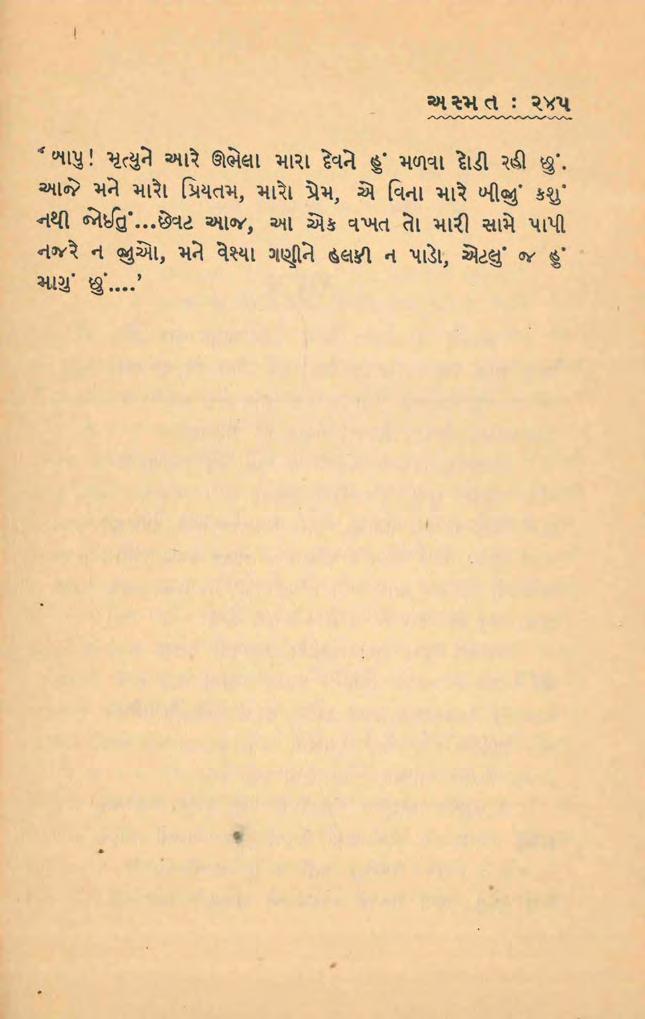 અસ્મત : ૨૪૫
‘બાપુ! મૃત્યુને આરે ઊભેલા મારા દેવને હું મળવા દોડી રહી છું.
આજે મને મારો પ્રિયતમ, મારો પ્રેમ, એ વિના મારે બીજું કશું
નથી જોઈતું...છેવટ આજ, આ એક વખત તો મારી સામે પાપી
નજરે ન જુઓ, મને વેસ્યા ગણીને હલકી ન પાડો, એટલું જ હું
માગું છું....’